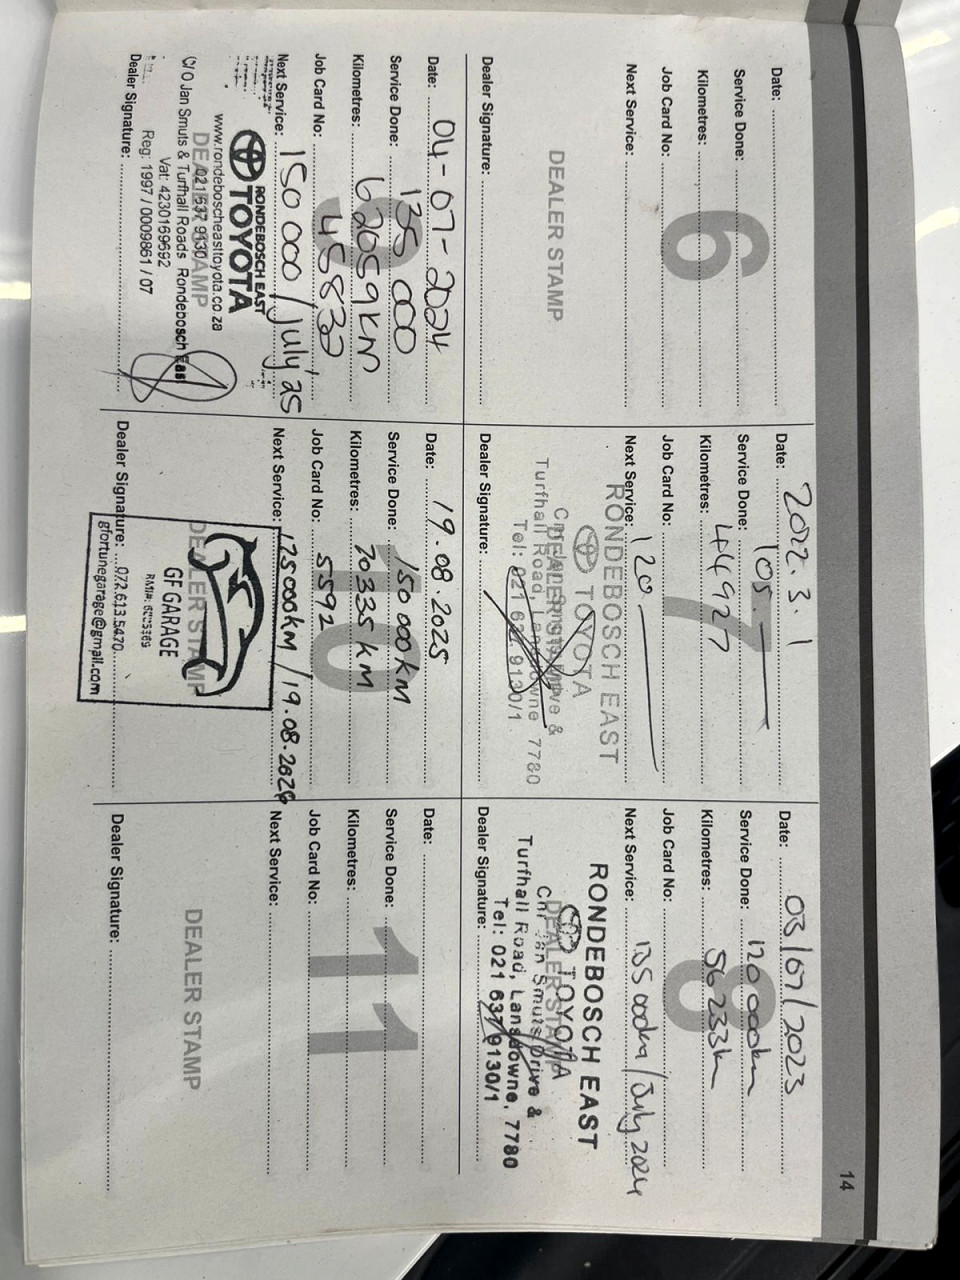 14
6
Date:
Service Done:
Kilometres:
Job Card No:
Next Service:
DEALER STAMP
Dealer Signature:
7
Date: 2022.3.1
Service Done: 105
Kilometres: 44927
Job Card No:
Next Service: 120
RONDEBOSCH EAST
TOYOTA
DEALER STAMP
Drive &
Turfhall Road, Lansdowne 7780
Tel: 021 637 9130/1
Dealer Signature:
8
Date: 03/07/2023
Service Done: 120 000km
Kilometres: 56 233km
Job Card No:
Next Service: 135 000km/July 2024
RONDEBOSCH EAST
TOYOTA
DEALER STAMP
Smuts Drive &
Turfhall Road, Lansdowne, 7780
Tel: 021 637 9130/1
Dealer Signature:
9
Date: 04-07-2024
Service Done: 135 000
Kilometres: 62059km
Job Card No: 45832
Next Service: 150 000/July'25
RONDEBOSCH EAST
TOYOTA
www.rondeboscheasttoyota.co.za
DEALER STAMP
021 637 9130
C/O Jan Smuts & Turfhall Roads Rondebosch East
Vat: 4230169692
Reg: 1997 / 0009861 / 07
Dealer Signature:
10
Date: 19.08.2025
Service Done: 150 000KM
Kilometres: 70335 KM
Job Card No: 5592
Next Service: 175000KM/19.08.2026
DEALER STAMP
GF GARAGE
072.613.5470
gfortunegarage@gmail.com
Dealer Signature:
11
Date:
Service Done:
Kilometres:
Job Card No:
Next Service:
DEALER STAMP
Dealer Signature: